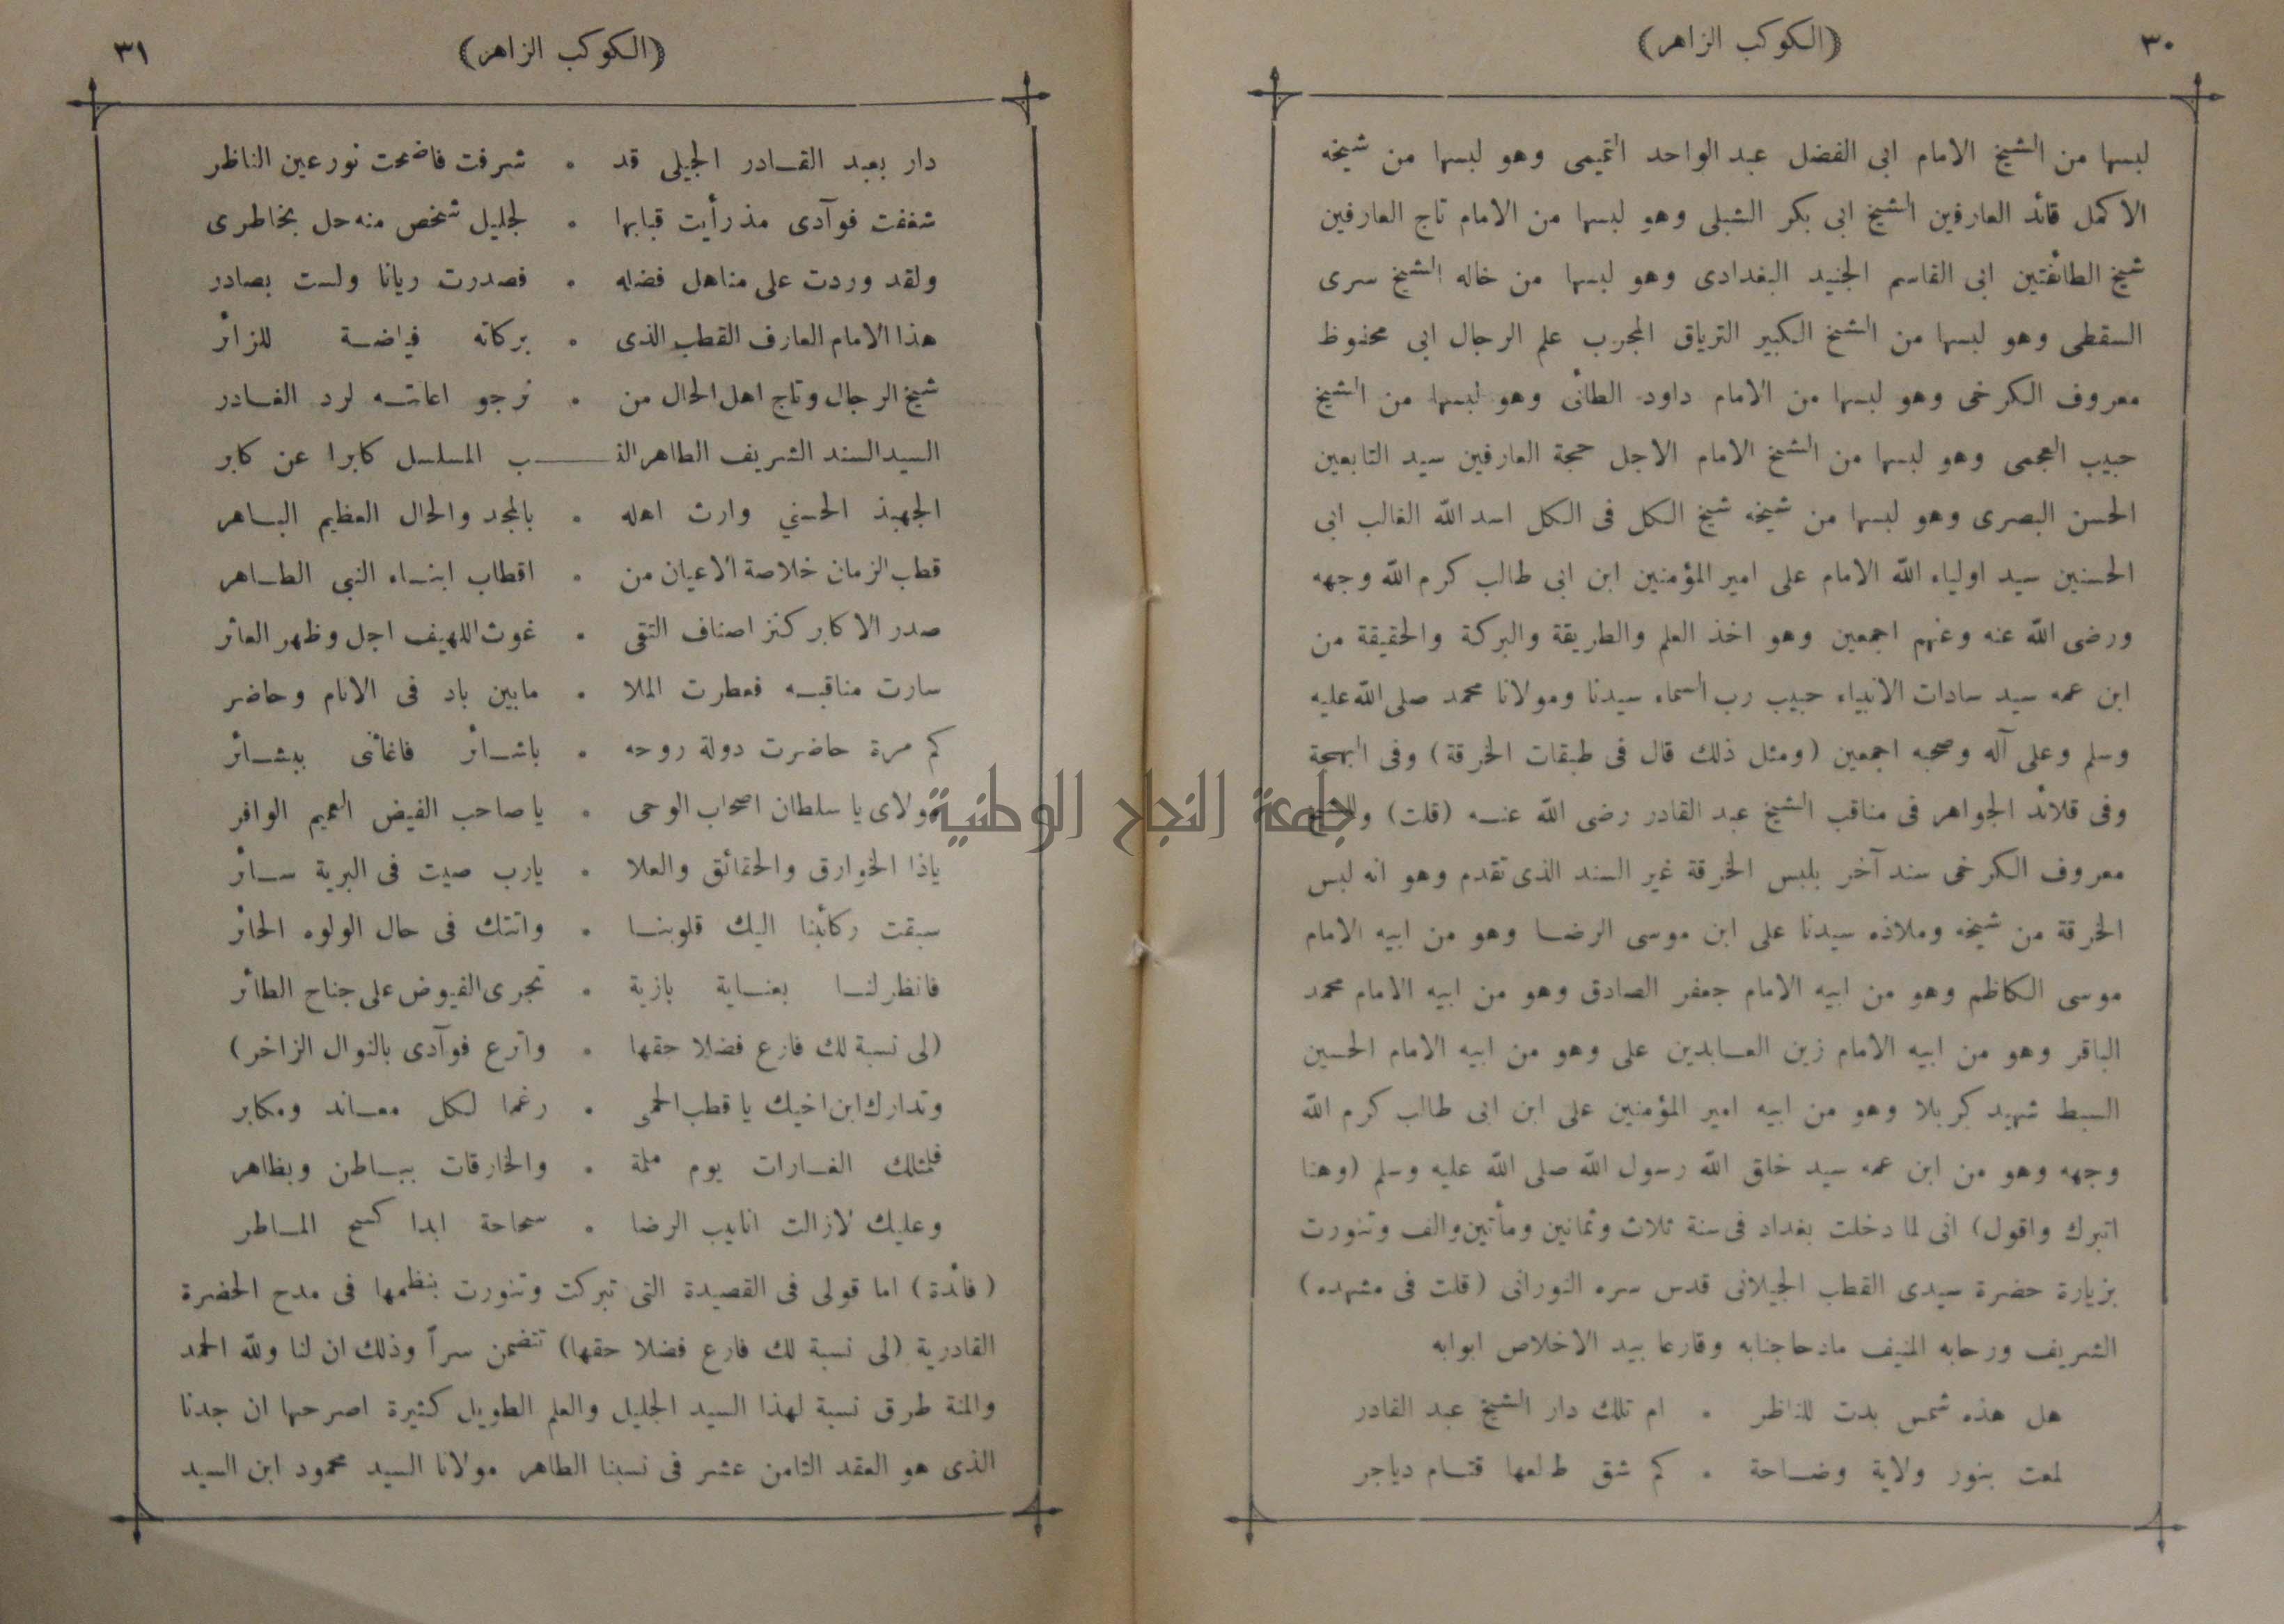 ٣٠
(الكوكب الزاهر)
لبسها من الشيخ الامام ابى الفضل عبد الواحد التميمى وهو لبسها من شيخه
الاكمل قائد العارفين الشيخ ابى بكر الشبلى وهو لبسها من الامام تاج العارفين
شيخ الطائفتين ابى القاسم الجنيد البغدادى وهو لبسها من خاله الشيخ سرى
السقطى وهو لبسها من الشيخ الكبير الترياق المجرب علم الرجال ابى محفوظ
معروف الكرخى وهو لبسها من الامام داود الطائى وهو لبسها من الشيخ
حبيب العجمى وهو لبسها من الشيخ الامام الاجل حجة العارفين سيد التابعين
الحسن البصرى وهو لبسها من شيخه شيخ الكل فى الكل اسد الله الغالب ابى
الحسنين سيد اولياء الله الامام على امير المؤمنين ابن ابى طالب كرم الله وجهه
ورضى الله عنه وعنهم اجمعين وهو اخذ العلم والطريقة والبركة والحقيقة من
ابن عمه سيد سادات الانبياء حبيب رب السماء سيدنا ومولانا محمد صلى الله عليه
وسلم وعلى آله وصحبه اجمعين (ومثل ذلك قال فى طبقات الخرقة) وفى البهجة
وفى قلائد الجواهر فى مناقب الشيخ عبد القادر رضى الله عنه (قلت) وللشيخ
معروف الكرخى سند آخر بلبس الخرقة غير السند الذى تقدم وهو انه لبس
الخرقة من شيخه وملاذه سيدنا على ابن موسى الرضا وهو من ابيه الامام
موسى الكاظم وهو من ابيه الامام جعفر الصادق وهو من ابيه الامام محمد
الباقر وهو من ابيه الامام زين العابدين على وهو من ابيه الامام الحسين
السبط شهيد كربلا وهو من ابيه امير المؤمنين على ابن ابى طالب كرم الله
وجهه وهو من ابن عمه سيد خلق الله رسول الله صلى الله عليه وسلم (وهنا
اتبرك واقول) انى لما دخلت بغداد فى سنة ثلاث وثمانين ومأتين والف وتنورت
بزيارة حضرة سيدى القطب الجيلانى قدس سره النورانى (قلت فى مشهده)
الشريف ورحابه المنيف مادحا جنابه وقارعا بيد الاخلاص ابوابه
هل هذه شمس بدت للناظر . ام تلك دار الشيخ عبد القادر
لمعت بنور ولاية وضاحة . كم شق طالعها قتام دياجر
(الكوكب الزاهر)
٣١
دار بعبد القادر الجيلى قد . شرفت فاضحت نور عين الناظر
شغفت فوآدى مذ رأيت قبابها . لجليل شخص منه حل بخاطرى
ولقد وردت على مناهل فضله . فصدرت ريانا ولست بصادر
هذا الامام العارف القطب الذى . بركاته فياضة للزائر
شيخ الرجال وتاج اهل الحال من . نرجو اعانته لرد الغادر
السيد السند الشريف الطاهر النسب المسلسل كابرا عن كابر
الجهبذ الحسنى وارث اهله . بالمجد والحال العظيم الباهر
قطب الزمان خلاصة الاعيان من . اقطاب ابناء النبى الطاهر
صدر الاكابر كنز اصناف التقى . غوث اللهيف اجل وظهر العاثر
سارت مناقبه فعطرت الملا . مابين باد فى الانام وحاضر
كم مرة حاضرت دولة روحه . باشائر فاغاثنى ببشائر
مولاى يا سلطان اصحاب الوحى . يا صاحب الفيض العميم الوافر
ياذا الخوارق والحقائق والعلا . يارب صيت فى البرية سائر
سبقت ركائبنا اليك قلوبنا . واتتك فى حال الولوه الحائر
فانظر لنا بعناية بازية . تجرى الفيوض على جناح الطائر
(لى نسبة لك فارع فضلا حقها . واترع فوآدى بالنوال الزاخر)
وتدارك ابن اخيك يا قطب الحمى . رغما لكل معاند ومكابر
فلمثلك الغارات يوم ملمة . والخارقات بباطن وبظاهر
وعليك لازالت انابيب الرضا . سحاحة ابدا كسح الماطر
(فائدة) اما قولى فى القصيدة التى تبركت وتنورت بنظمها فى مدح الحضرة
القادرية (لى نسبة لك فارع فضلا حقها) تتضمن سراً وذلك ان لنا ولله الحمد
والمنة طرق نسبة لهذا السيد الجليل والعلم الطويل كثيرة اصرحها ان جدنا
الذى هو العقد الثامن عشر فى نسبنا الطاهر مولانا السيد محمود ابن السيد
جامعة النجاح الوطنية